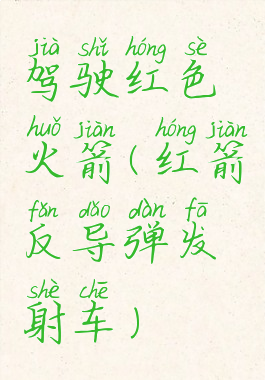 jià shǐ hóng sè
驾驶红色
huǒ jiàn hóng jiàn
火箭(红箭
fǎn dǎo dàn fā
反导弹发
shè chē
射车)